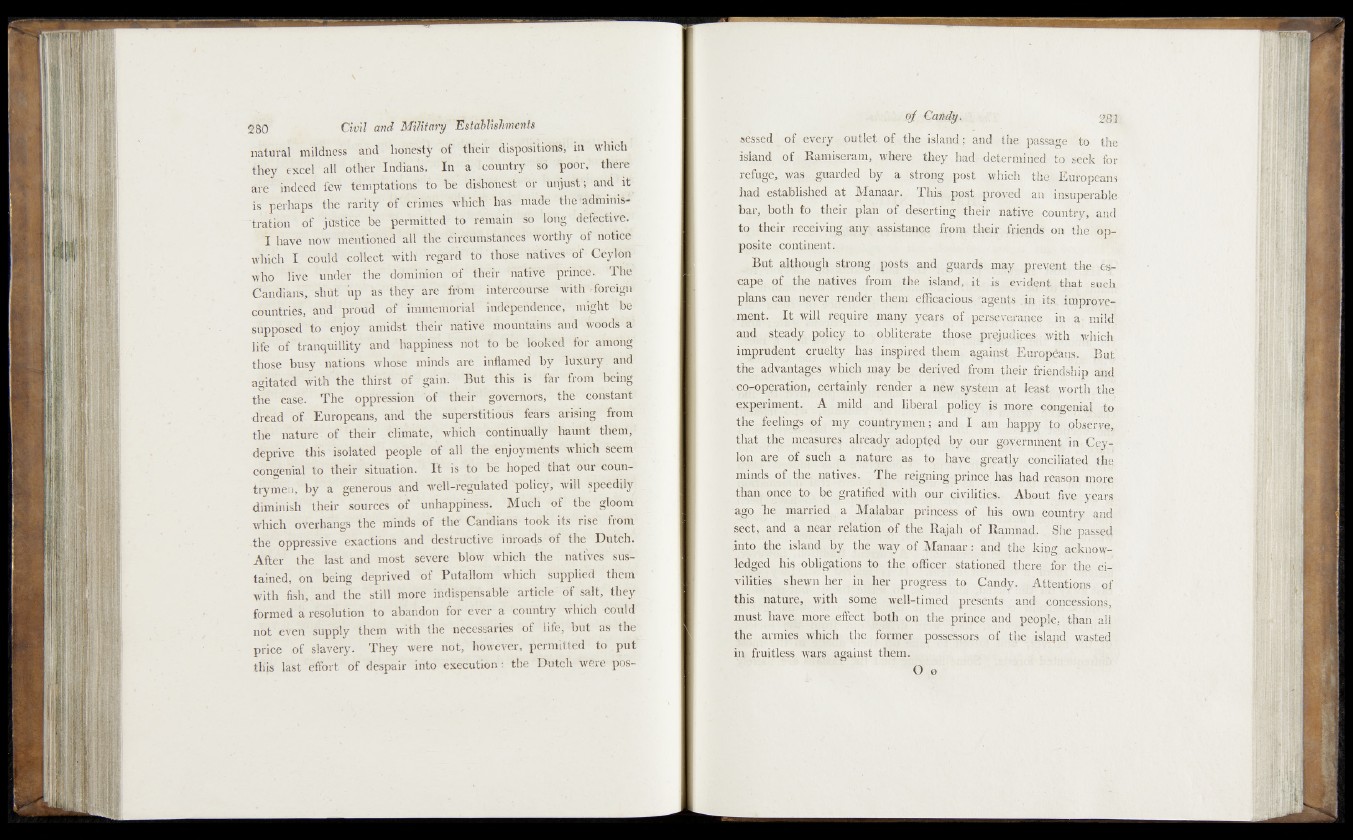 280 Civil and Military Establishments
natural mildness and honesty of their dispositions, in which
they excel all other Indians. In a country so poor, there
are indeed few temptations to be dishonest or unjust; and it
is perhaps the rarity of crimes which has made the adminis-
tration of justice be permitted to remain so long defective.
I have now mentioned all the circumstances worthy of notice
which I could collect with regard to those natives of Ceylon
who live under the dominion of their native prince. The
Candians, shut up as they are from intercourse with foreign
countries, and proud of immemorial independence, might be
supposed to enjoy amidst their native mountains and woods a
life of tranquillity and happiness not to be looked for among
those busy nations whose minds are inflamed by luxury and
agitated with the thirst of gain. But this is far from being
the case. The oppression of their governors, the constant
dread of Europeans, and the superstitious fears arising from
the nature of their climate, which continually haunt them,
deprive this isolated people of all the enjoyments which seem
congenial to their situation. It is to be hoped that our coun-
trymen, by a generous and well-regulated policy, will speedily
diminish their sources of unhappiness. Much of the gloom
which overhangs the minds of the Candians took its rise from
the oppressive exactions and destructive inroads of the Dutch.
After the last and most severe blow which the natives sus-
tained, on being deprived of Putallom which supplied them
with fish, and the still more indispensable article of salt, they
formed a resolution to abandon for ever a country which could
not even supply them with the necessaries of life, but as the
price of slavery. They were not, however, permitted to put
this last effort of despair into execution: the Dutch were pos-
of Candy. 281
sessed of every outlet of the island; and the passage to the
island of Ramiseram, where they had determined to seek for
refuge, was guarded by a strong post which the Europeans
had established at Manaar. This post proved an insuperable
bar, both to their plan of deserting their native country, and
to their receiving any assistance from their friends on the op-
posite continent.
But although strong posts and guards may prevent the es-
cape of the natives from the island, it is evident that such
plans can never render them efficacious agents in its improve-
ment. It will require many years of perseverance in a mild
and steady policy to obliterate those prejudices with which
imprudent cruelty has inspired them against Europeans. But
the advantages which may be derived from their friendship and
co-operation, certainly render a new system at least worth the
experiment. A mild and liberal policy is more congenial to
the feelings of my countrymen; and I am happy to observe,
that the measures already adopted by our government in Cey-
lon are of such a nature as to have greatly conciliated the
minds of the natives. The reigning prince has had reason more
than once to be gratified with our civilities. About five years
ago he married a Malabar princess of his own country and
sect, and a near relation of the Rajah of Ramnad. She passed
into the island by the way of Manaar: and the king acknow-
ledged his obligations to the officer stationed there for the ci-
vilities shewn her in her progress to Candy. Attentions of
this nature, with some well-timed presents and concessions,
must have more effect both on the prince and people, than all
the armies which the former possessors of the island wasted
in fruitless wars against them.
O o